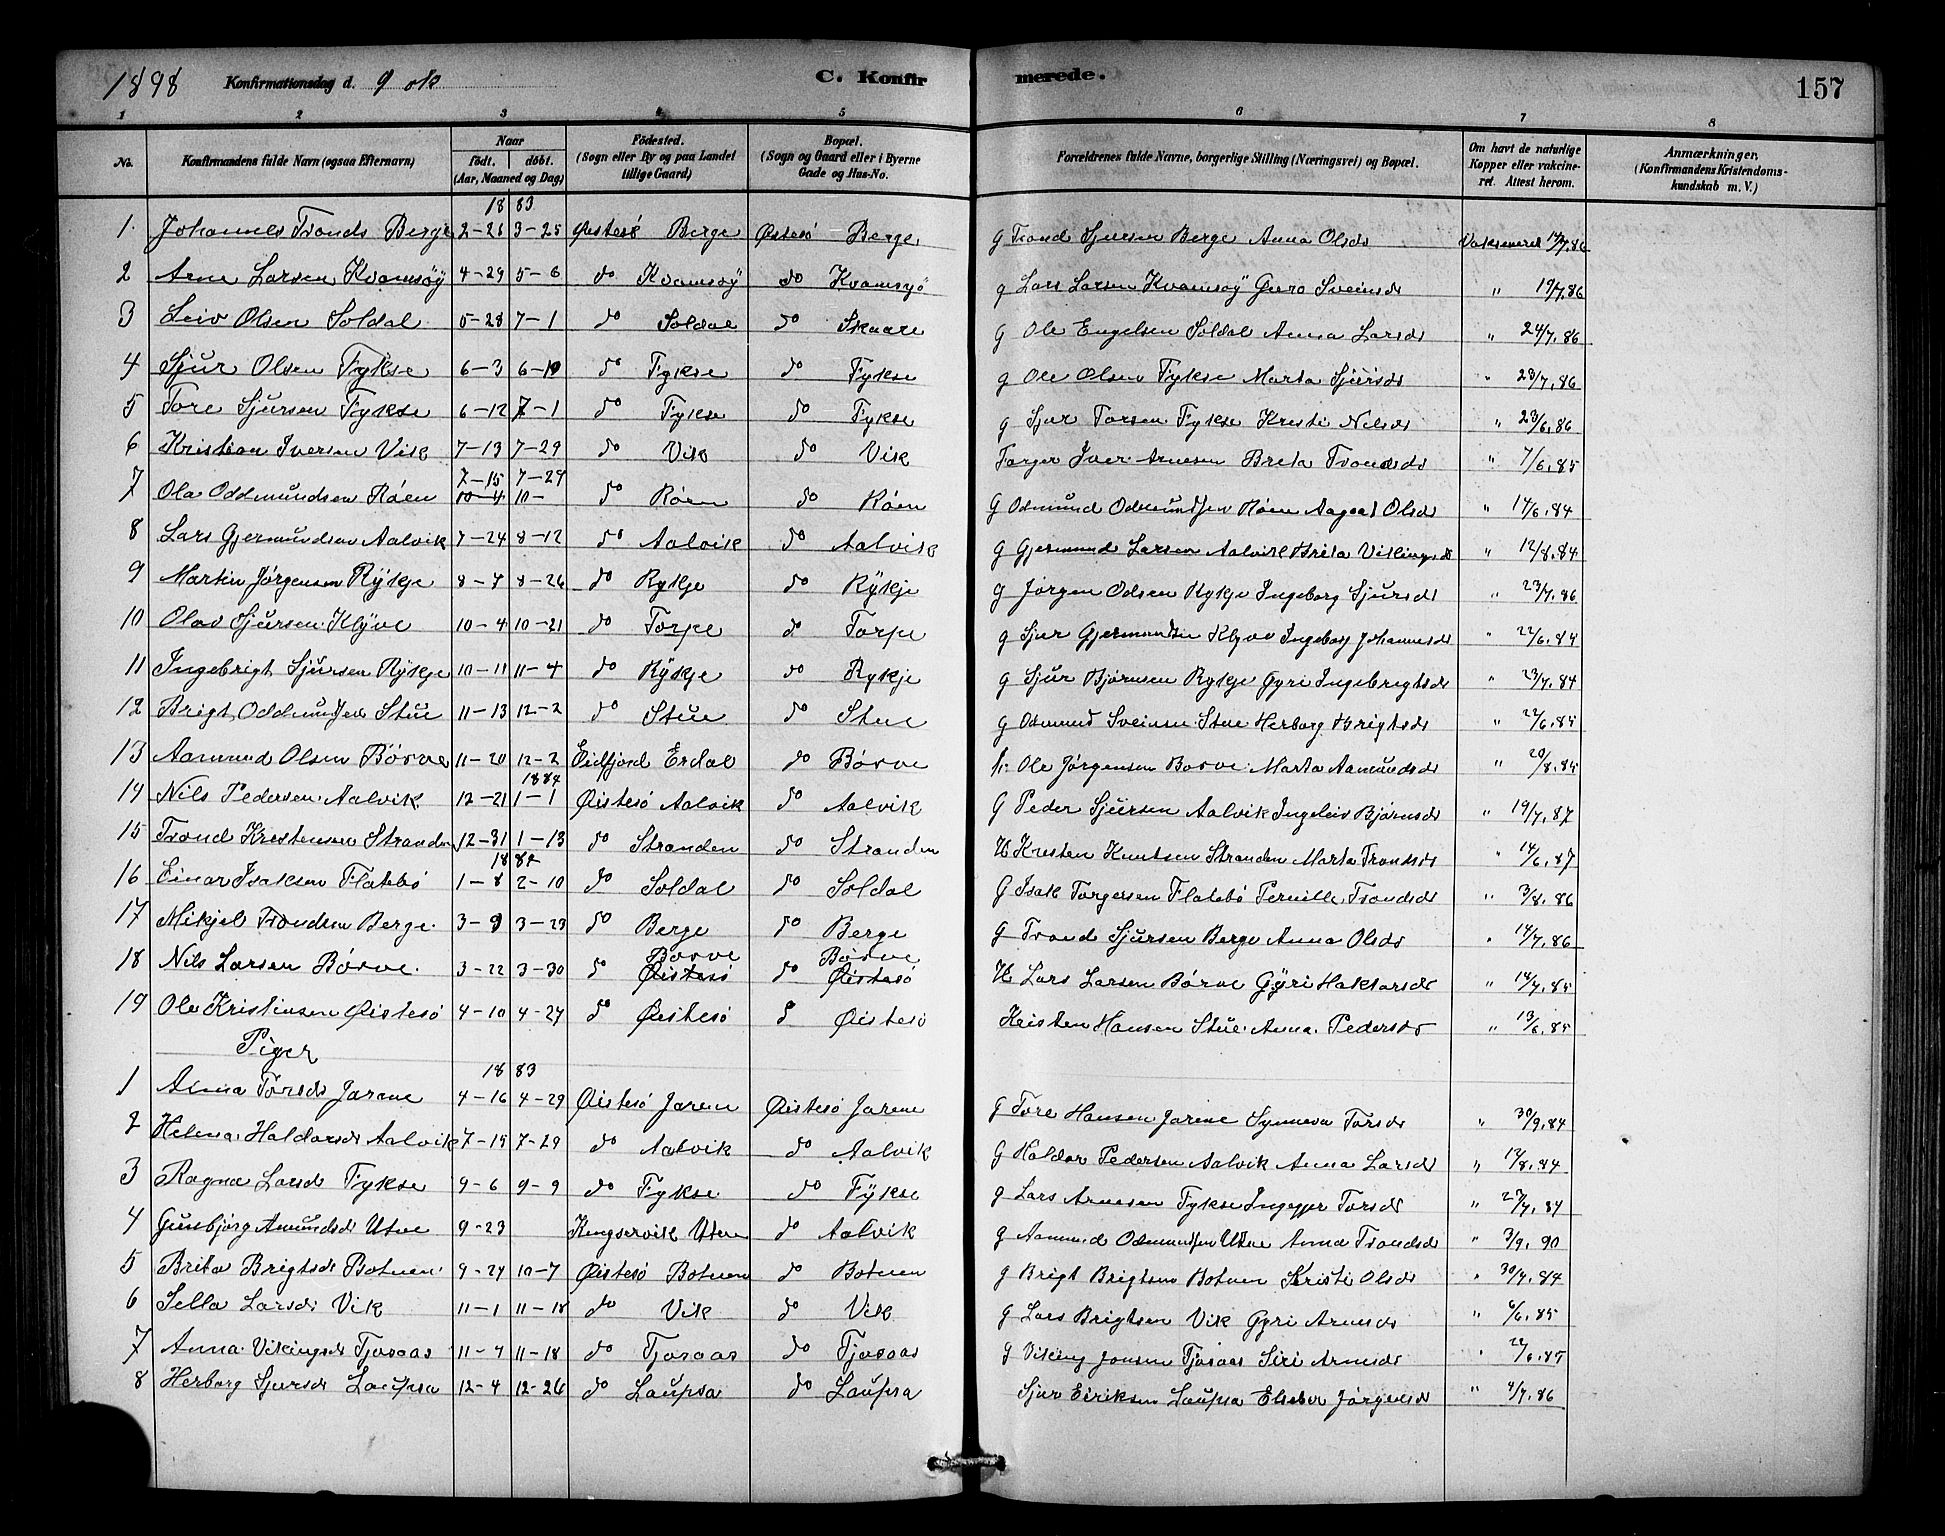 1898 Konfirmationsdag d. 9 ok C. Konfirmerede. 157
1 2 3 4 5 6 7 8
No. Konfirmandens fulde Navn (ogsaa Efternavn) Naar födt. döbt. (Aar, Maaned og Dag) Födested. (Sogn eller By og paa Landet tillige Gaard) Bopæl. (Sogn og Gaard eller i Byerne Gade og Hus-No. Forældrenes fulde Navne, borgerlige Stilling (Næringsvei) og Bopæl. Om havt de naturlige Kopper eller vakcineret. Attest herom. Anmærkninger. (Konfirmandens Kristendomskundskab m. V.)
1883
1. Johannes Tronds Berge 2-26 3-25 Øistesö Berge Østesö Berge. g Trond Sjursen Berge Anna Olsdr Vaksineret 14/7.86
2 Arne Larsen Kvamsöÿ 4-29 5-6 do Kvamsöÿ do Kvamsyö g Lars Larsen Kvamsöÿ Guro Sveinsdr " 19/7.86
3 Leiv Olsen Soldal 5-28 7-1 do Soldal do Skaare g Ole Engelsen Soldal Anna Larsdr " 24/7.86
4 Sjur Olsen Fykse 6-3 6-10 do Fykse do Fykse g Ole Olsen Fykse Marta Sjursdr " 23/7.86
5 Tore Sjursen Fykse 6-12 7-1 do Fykse do Fykse g Sjur Torsen Fykse Kristi Nilsdr " 23/6.86
6 Kristian Iversen Vik 7-13 7-29 do Vik do Vik Torger Iver Arnesen Breta Trondsdr " 7/6.85
7-15 7-29
7 Ola Oddmundsen Röen 10-4 10- do Röen do Röen G Odmund Odmundsen Röen Aagaat Olsdr " 14/6.84
8 Lars Gjermundsen Aalvik 7-24 8-12 do Aalvik do Aalvik G Gjermund Larsen Aalvik Brita Vikingsdr " 12/8.84
9 Martin Jörgensen Rÿkje 8-7 8-26 do Rykje do Rÿkje g Jörgen Odsen Rykje Ingeborg Sjursdr " 23/7.86
10 Olav Sjursen Klÿve 10-4 10-21 do Torpe do Torpe g Sjur Gjermundsen Klyve Ingeborg Johannesdr " 22/6.84
11 Ingebrigt Sjursen Rÿkje 10-11 11-4 do Rÿkje do Rykje g Sjur Bjørnsen Rykje Gyri Ingebrigtsdr " 23/7.84
12 Brigt Oddmundsen Stue 11-13 12-2 do Stue do Stue g Odmund Sveinsen Stue Herborg Brigtsdr " 22/6.85
13 Aamund Olsen Börve 11-20 12-2 Eidfjord Erdal do Börve Ole Jörgensen Borve Marta Aamundsdr " 20/8.85
1884
14 Nils Pedersen Aalvik 12-21 1-1 Øistesö Aalvik do Aalvik G Peder Sjursen Aalvik Ingeleiv Björnsdr " 19/7.87
15 Trond Kristensen Stranden 12-31 1-13 do Stranden do Stranden H Kristen Knutsen Stranden Marta Trondsdr " 14/6.87
188
16 Einar Isaksen Flatebö 1-8 2-10 do Soldal do Soldal G Isak Torgersen Flatebö Pernille Trondsdr " 3/8.86
17 Mikjel Trondsen Berge 3-9 3-23 do Berge do Berge g Trond Sjursen Berge Anna Olsdr " 14/7.86
Borve Börve
18 Nils Larsen Börve 3-22 3-30 do Øistesö do Øistesö H Lars Larsen Börve Gÿri Haktorsdr " 14/7.85
19 Ole Kristensen Øistesö 4-10 4-27 do Øistesö do Øistesö Kristen Hansen Stue Anna Pedersdr " 13/6.85
Piger
1883
1 Anna Torsdr Jarene 4-16 4-29 Øistesö Jaren Øistesö Jarene g Tore Hansen Jarene Synneva Torsdr " 30/9.84
2 Helena Haldorsdr Aalvik 7-15 7-29 do Aalvik do Aalvik G Haldor Pedersen Aalvik Anna Larsdr " 12/8.84
3 Ragna Larsdr Fykse 9-6 9-9 do Fykse do Fÿkse g Lars Arnesen Fykse Ingeger Torsdr " 23/7.84
4 Gunbjörg Amundsdr Utne 9-23 Kingservik Utne do Aalvik g Aamund Odmundsen Utne Anna Trondsdr " 3/9.90
5 Brita Brigtsdr Botnen 9-24 10-7 Øistesö Botnen do Botnen g Brigt Brigtsen Botnen Kristi Olsdr " 30/7.84
6 Sella Larsdr Vik 11-1 11-18 do Vik do Vik g Lars Brigtsen Vik Gyri Arnesdr " 6/6.85
7 Anna Vikingsdr Tjosaas 11-7 11-18 do Tjosaas do Tjosaas g Viking Jonsen Tjosaas Siri Arnesdr " 22/6.85
8 Herborg Sjursdr Laupsa 12-4 12-26 do Laupsa do Laupsa Sjur Eiriksen Laupsa Elseber Jörgensdr " 4/7.86